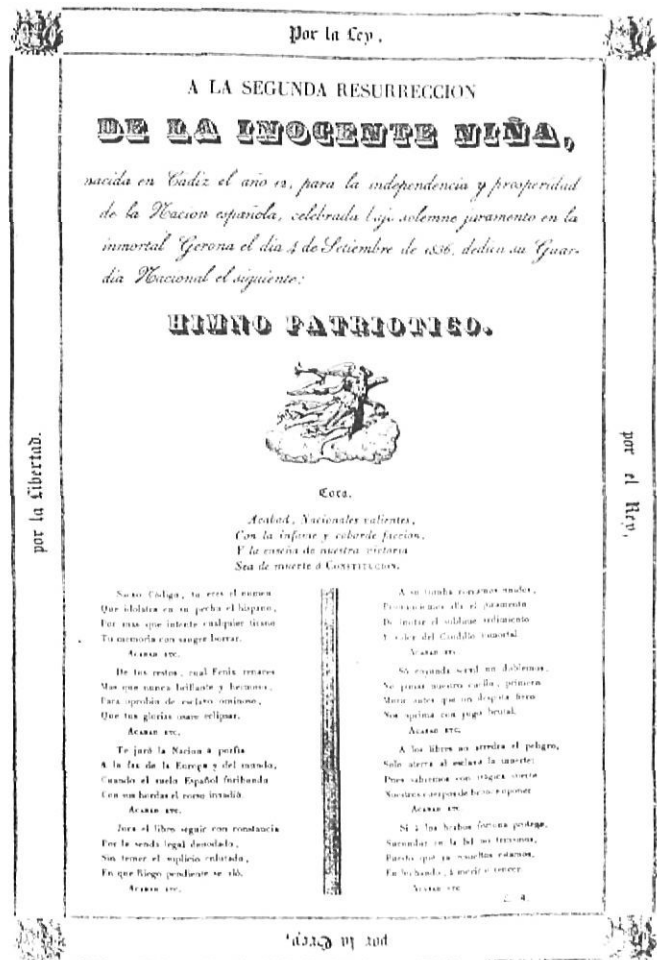 Por la Ley,
A LA SEGUNDA RESURRECCION
DE LA INOCENTE NIÑA,
nacida en Cadiz el año 12, para la independencia y prosperidad
de la Nacion española, celebrada bajo solemne juramento en la
inmortal Gerona el dia 4 de Setiembre de 1836, dedica su Guar-
dia Nacional el siguiente:
HIMNO PATRIOTICO.
por la Libertad.
por el Rey,
Coro.
Acabad, Nacionales valientes,
Con la infame y coborde faccion,
Y la enseña de nuestra victoria
Sea de muerte ó CONSTITUCION.
Sacro Código, tu eres el numen
Que idolatra en su pecho el hispano,
Por mas que intente cualquier tirano
Tu memoria con sangre borrar.
ACABAD ETC.
De tus restos, cual Fenix renaces
Mas que nunca brillante y hermosa,
Para oprobio de esclavo ominoso,
Que tus glorias osare eclipsar.
ACABAD ETC.
Te juró la Nacion á porfia
A la faz de la Europa y del mundo,
Cuando el suelo Español furibundo
Con sus hordas el corso invadió.
ACABAD ETC.
Jura el libre seguir con constancia
Por la senda legal denodado,
Sin temer el suplicio enlutado,
En que Riego pendiente se vió.
ACABAD ETC.
A su tumba corramos unidos,
el juramento
De imitar el sublime ardimiento
Y valor del Caudillo inmortal.
ACABAD ETC.
servil no doblemos,
No primero
Muera antes que un despota fiero
Nos oprima con yugo brutal.
ACABAD ETC.
A los libres no arredra el peligro,
Solo aterra al esclavo la muerte;
Pues sabremos con trágica suerte
Nuestros cuerpos de oponer
ACABAD ETC.
Si á los fortuna protege,
en la lid no
Puesto que ya resueltos estamos,
En luchando, á morir ó vencer.
ACABAD ETC.
por la Grey,